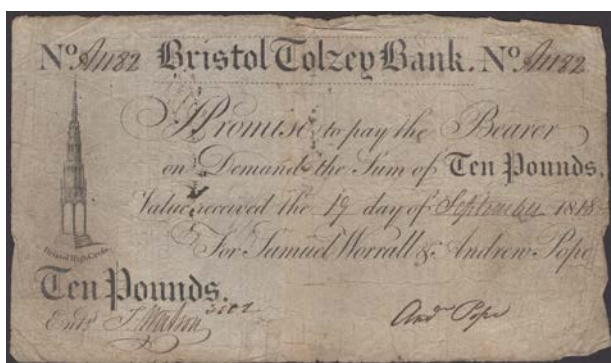 No A1182 Bristol Tolzey Bank. No A1182
I Promise to pay the Bearer
on Demand the Sum of Ten Pounds.
Value received the 19 day of September 1818
For Samuel Worrall & Andrew Pope
Bristol High Cross
Ten Pounds.
Entd J. Watson
And Pope